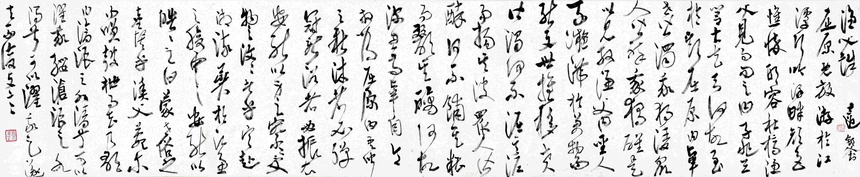 渔父
屈原既放游於江
潭行吟泽畔颜色
憔悴形容枯槁渔
父见而问之曰子非三
闾大夫与何故至
於斯屈原曰举
世皆浊我独清众
人皆醉我独醒是
以见放渔父曰圣人
不凝滞於万物而
能与世推移世人
皆浊何不淈其泥
而扬其波众人皆
醉何不餔其糟
而歠其醨何故
深思高举自令
放为屈原曰吾闻
之新沐者必弹
冠新浴者必振衣
安能以身之察察受
物之汶汶者乎宁赴
湘流葬於江鱼
之腹中安能以
皓皓之白蒙世俗之
尘埃乎渔父莞尔
而笑鼓枻而去乃歌
曰沧浪之水清兮可以
濯我缨沧浪之水
浊兮可以濯吾足遂
去不复与言